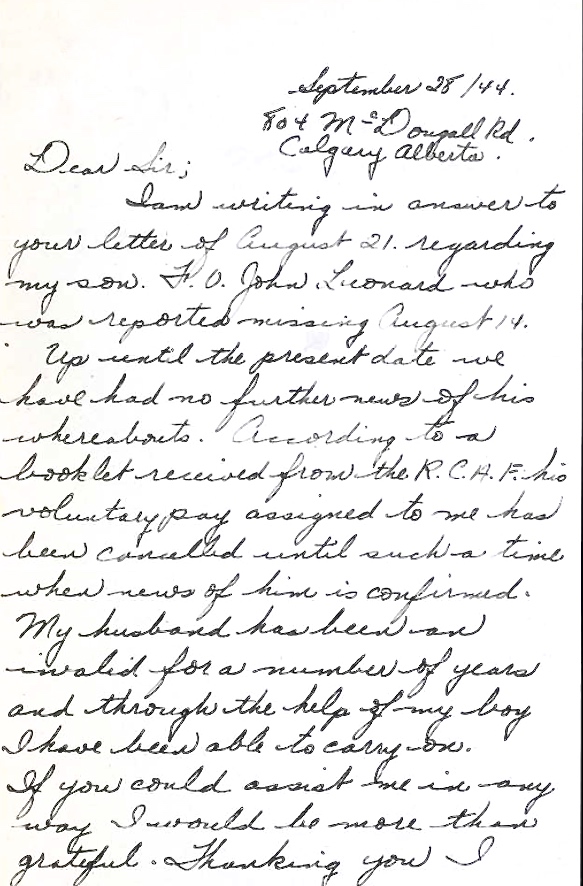 September 28/44.
804 McDougall Rd.
Calgary Alberta.
Dear Sir;
I am writing in answer to
your letter of August 21. regarding
my son. F. O. John Leonard who
was reported missing August 14.
Up until the present date we
have had no further news of his
whereabouts. According to a
booklet received from the R.C.A.F. his
voluntary pay assigned to me has
been cancelled until such a time
when news of him is confirmed.
My husband has been an
invalid for a number of years
and through the help of my boy
I have been able to carry on.
If you could assist me in any
way I would be more than
grateful. Thanking you I